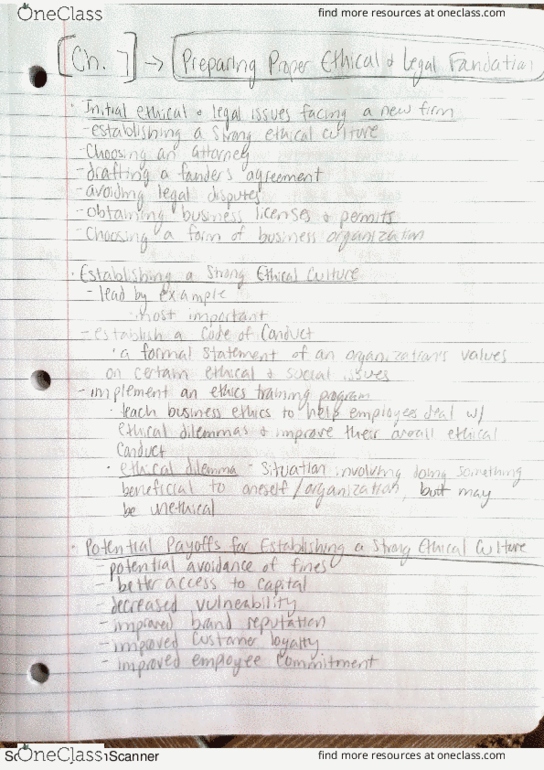 OneClass find more resources at oneclass.com
[Ch. 7] → Preparing Proper Ethical & Legal Foundation
· Initial ethical & legal issues facing a new firm
- establishing a strong ethical culture
- Choosing an attorney
- drafting a founders agreement
- avoiding legal disputes
- obtaining business licenses & permits
- Choosing a form of business organization
· Establishing a Strong Ethical Culture
- lead by example
· most important
- establish a Code of Conduct
· a formal statement of an organization's values
on certain ethical & social issues
- implement an ethics training program
· teach business ethics to help employees deal w/
ethical dilemmas & improve their overall ethical
Conduct
· ethical dilemma - Situation involving doing something
beneficial to oneself/organization, but may
be unethical
· Potential Payoffs for Establishing a Strong Ethical Culture
- potential avoidance of fines
- better access to capital
- decreased vulnerability
- improved brand reputation
- improved customer loyalty
- improved employee commitment
OneClass Scanner find more resources at oneclass.com